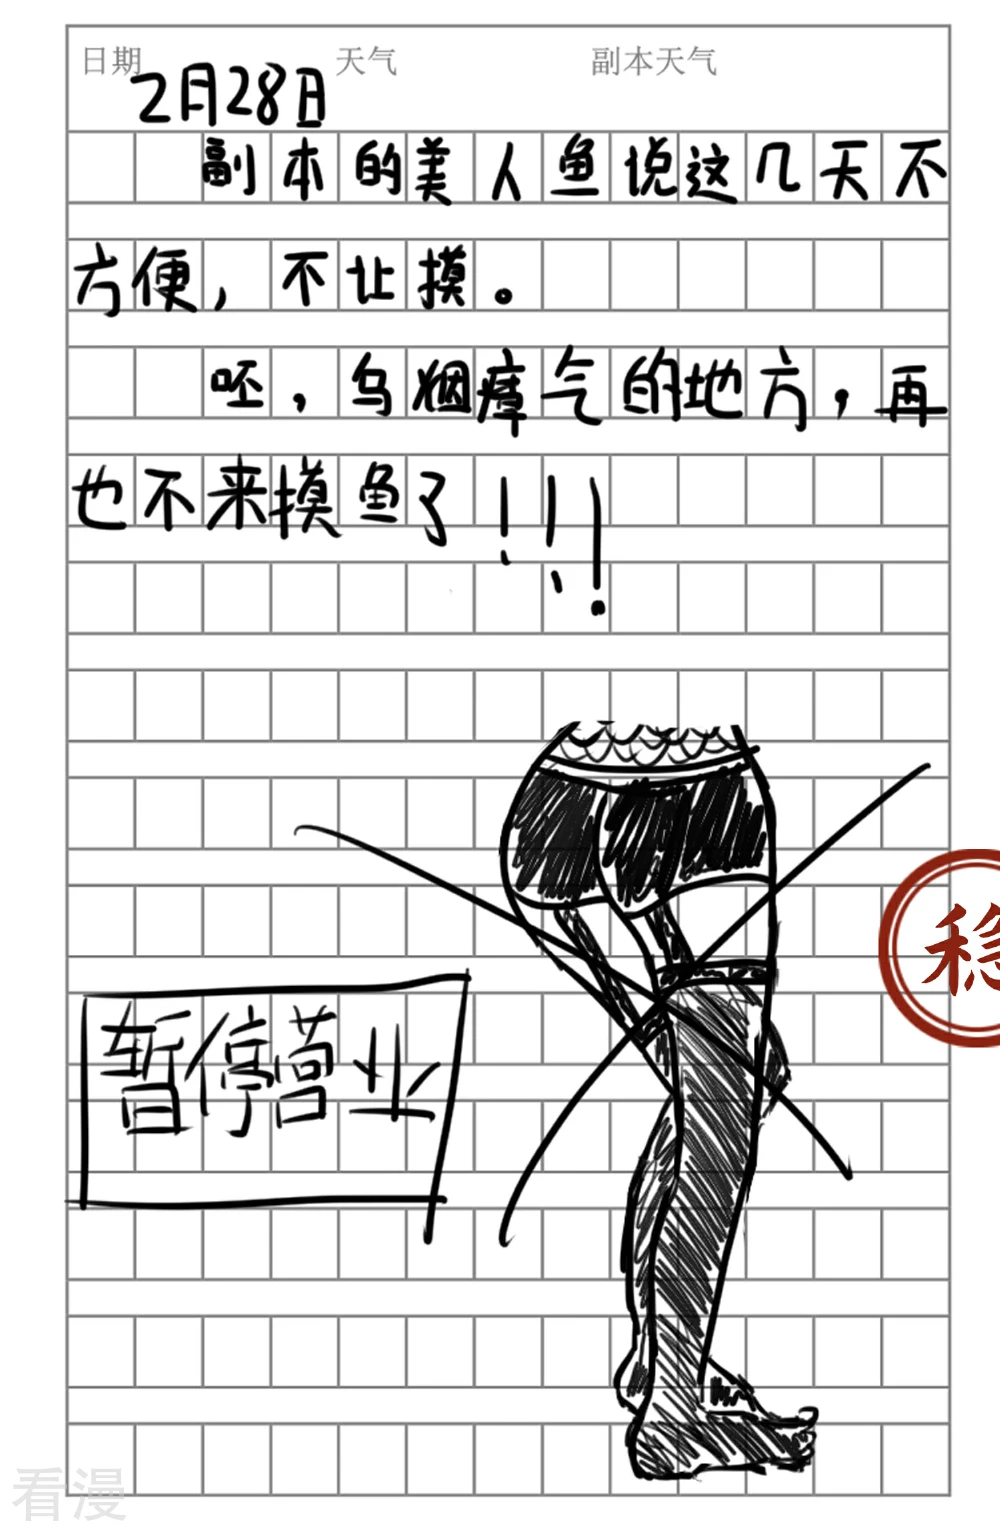 日期 天气 副本天气
2月28日
副本的美人鱼说这几天不
方便，不让摸。
呸，乌烟瘴气的地方，再
也不来摸鱼了!!!
稳
暂停营业
看漫